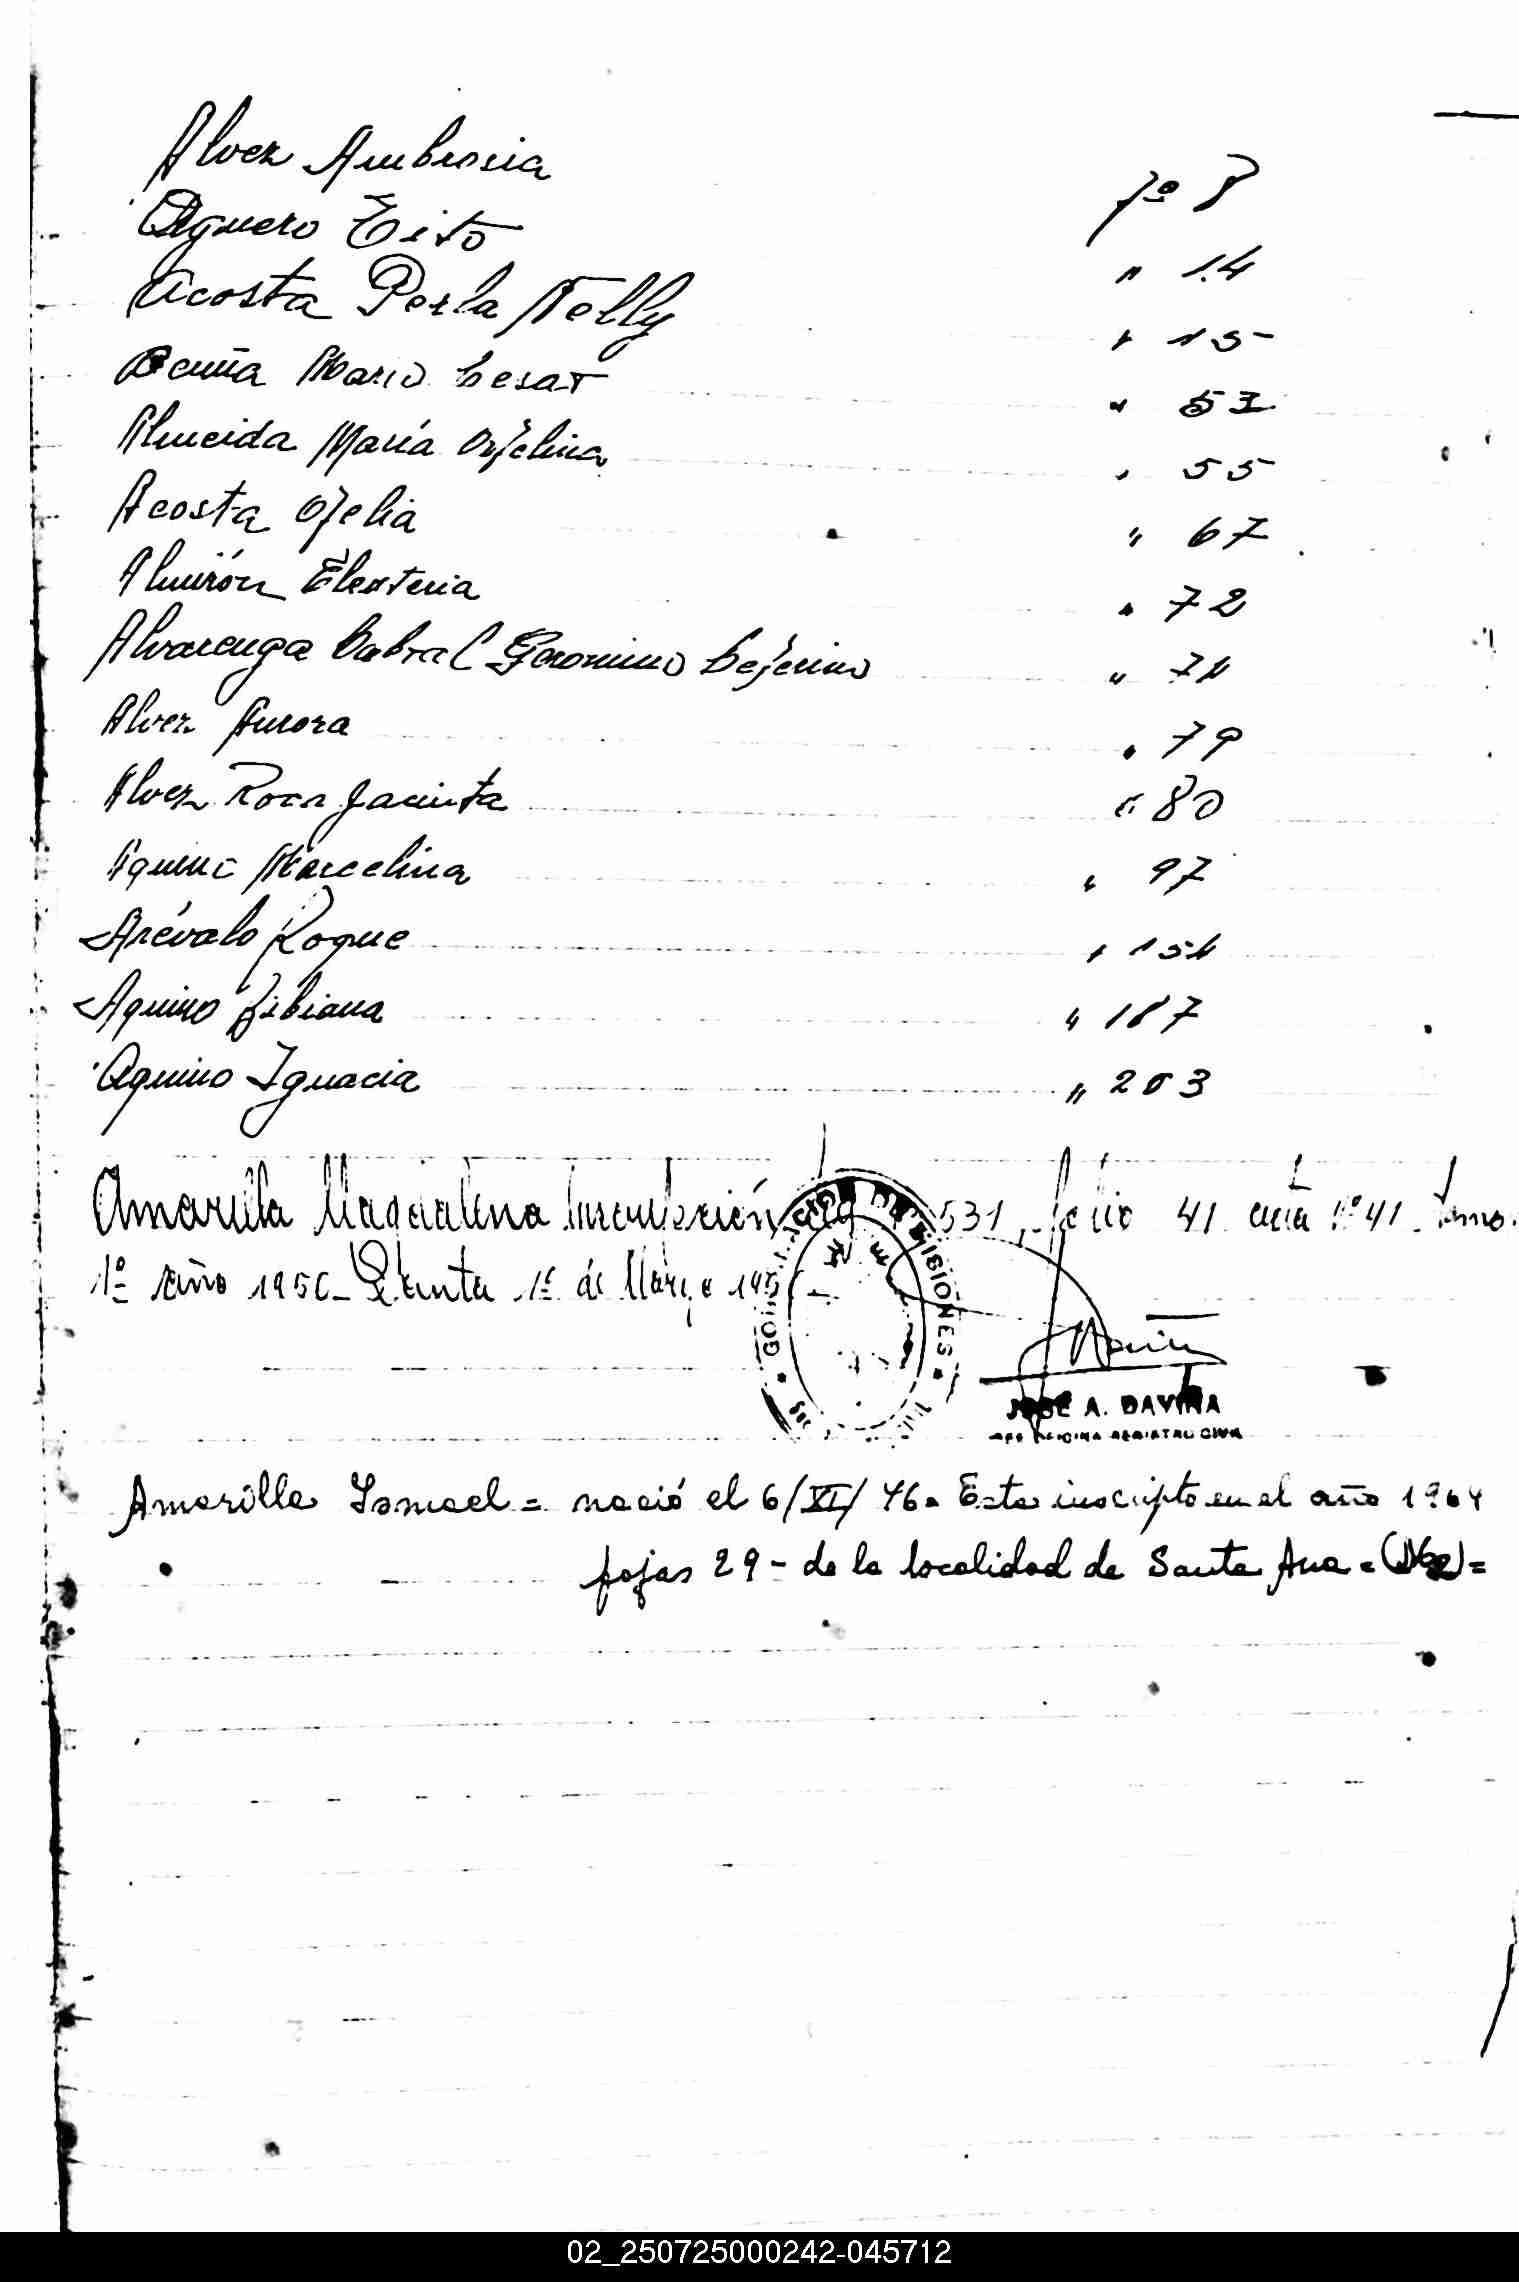 Alvez Ambrosia fº 8
Aguero Eito " 14
Acosta Perla Nelly " 15
Acuña Mario Cesar " 53
Almeida María Orfelina " 55
Acosta Ofelia " 67
Almirón Elexteria " 72
Alvarenga Cabral Geronimo Ceferino " 74
Alvez Aurora " 79
Alvez Rosa Jacinta " 80
Aquino Marcelina " 97
Arévalo Roque " 154
Aquino Bibiana " 187
Aquino Ignacia " 203
Amarilla Magdalena Inscripción 531, folio 41 acta nº 41. Tomo.
1º año 1956_ Santa 1º de Marzo
MISIONES
JOSE A. DAVIÑA
OFICINA REGISTRO CIVIL
Amarilla Ismael = nació el 6/XI/46. Esta inscripto en el año 1964
fojas 29 - de la localidad de Santa Ana =
02_250725000242-045712